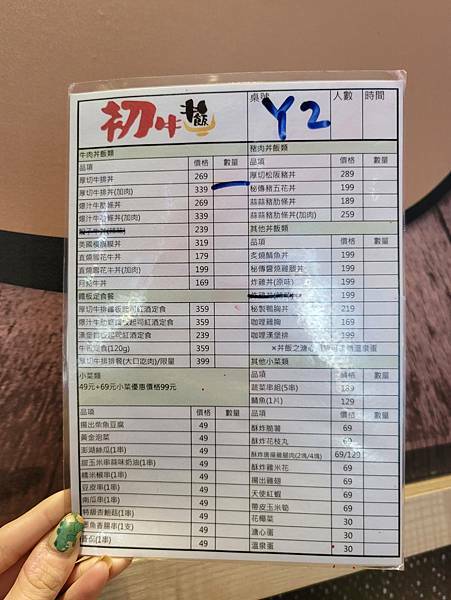 初牛
丼飯
桌號
Y2
人數
時間
牛肉丼飯類
品項 價格 數量
厚切牛排丼 269
厚切牛排丼(加肉) 339
爆汁牛肋條丼 269
爆汁牛肋條丼(加肉) 339
239
美國板腱丼 319
直燒雪花牛丼 179
直燒雪花牛丼(加肉) 199
月紅牛丼 169
鐵板定食餐
厚切牛排鐵板起司紅酒定食 359
爆汁牛肋鐵板起司紅酒定食 359
漢堡 起司紅酒定食 239
定食(120g) 359
厚切牛排排餐(大口吃肉)/限量 399
小菜類
49元+69元小菜優惠價格99元
品項 價格 數量
揚出柴魚豆腐 49
黃金泡菜 49
澎湖絲瓜(1串) 49
甜玉米串蒜味奶油(1串) 49
糯米椒串(1串) 49
豆皮串(1串) 49
南瓜串(1串) 49
特級香 菇(1串) 49
墨魚香腸串(1支) 49
(1串) 49
豬肉丼飯類
品項 價格 數量
厚切松阪豬丼 289
秘傳豬五花丼 199
蒜蒜豬肋條丼 189
蒜蒜豬肋條丼(加肉) 259
其他丼飯類
品項 價格 數量
炙燒鯖魚丼 199
秘傳鹽燒雞腿丼 199
炸雞丼(原味) 199
199
秘製鴨胸丼 219
咖哩雞胸 169
咖哩漢堡排 199
×丼飯之溏心 溫泉蛋
其他小菜類
品項 價格 數量
蔬菜串組(5串) 189
鯖魚(1片) 129
酥炸脆薯 69
酥炸花枝丸 69
酥炸唐揚雞腿肉(2塊/4塊) 69/129
酥炸雞米花 69
揚出雞翅 69
天使紅蝦 69
帶皮玉米筍 69
花椰菜 30
溏心蛋 30
溫泉蛋 30